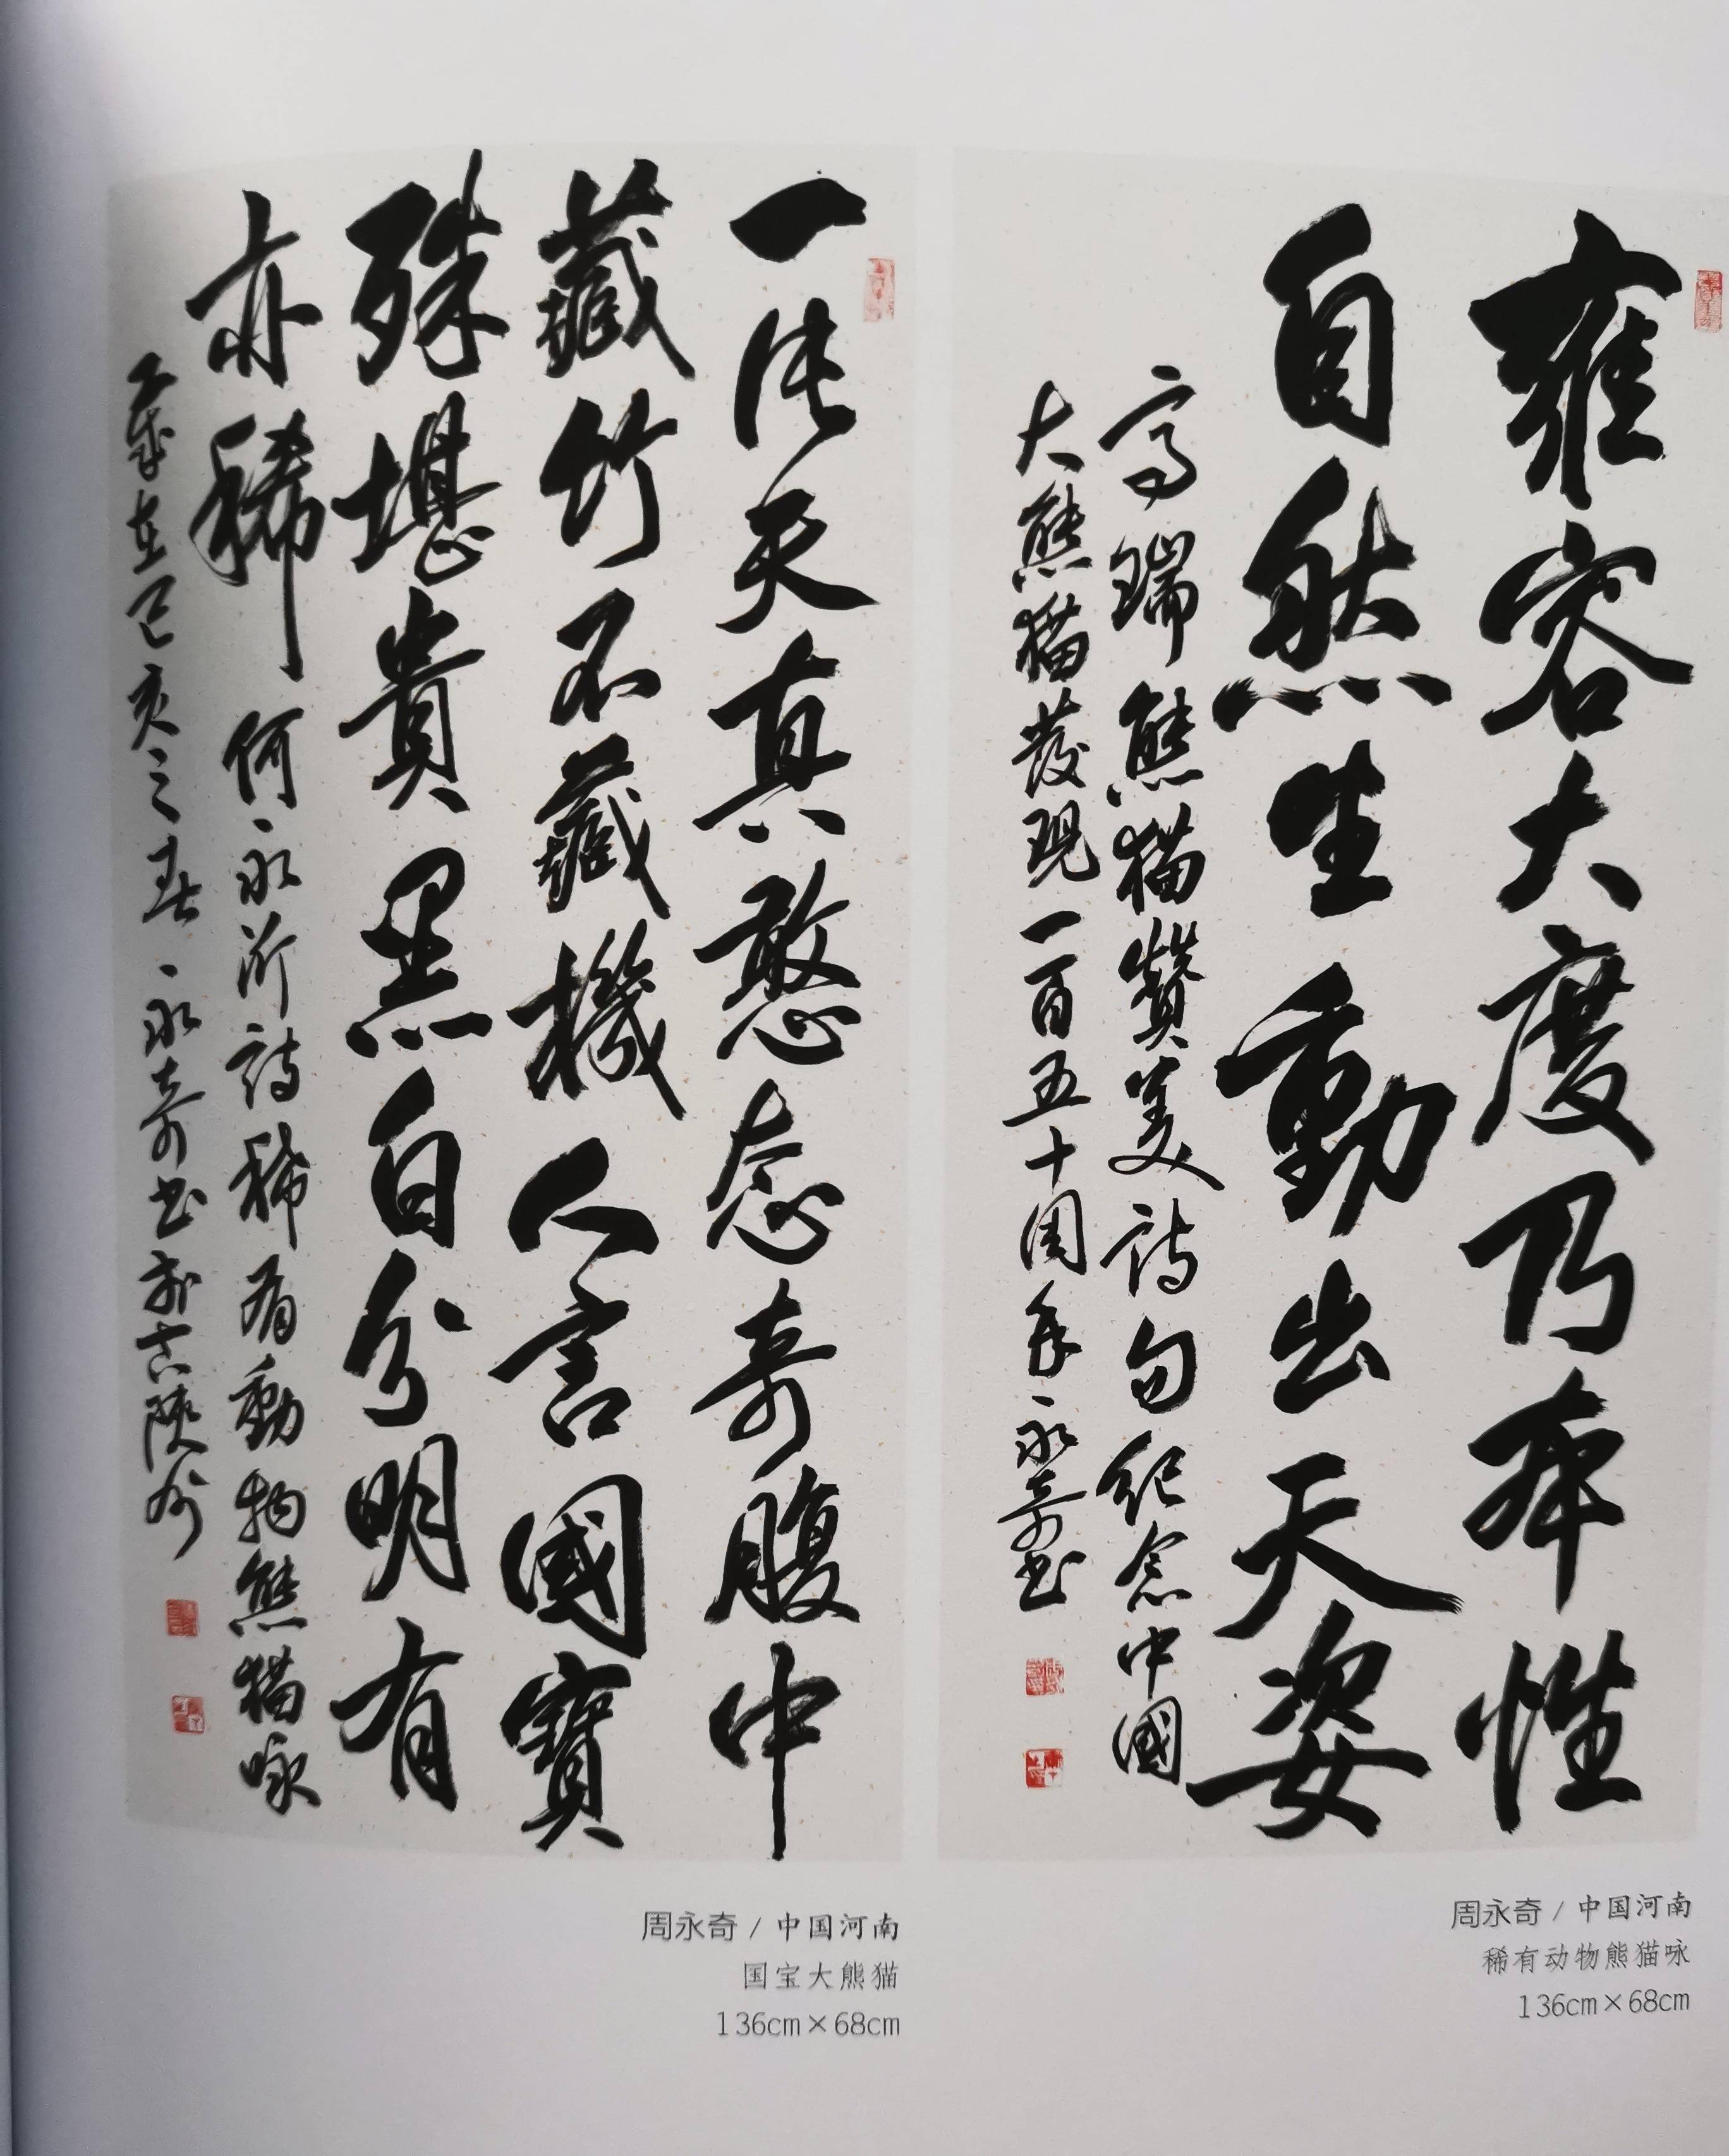 雍容大度乃本性
自然生動出天姿
高瑞熊猫赞美詩句纪念中國
大熊猫发现一百五十周年永奇书
一派天真憨态奇腹中
藏竹不藏機人言國寳
殊堪貴黑白分明有
亦稀
何永沂詩稀有動物熊猫咏
岁在己亥之春永奇书於古陕州
周永奇 / 中国河南
稀有动物熊猫咏
136cm×68cm
周永奇 / 中国河南
国宝大熊猫
136cm×68cm